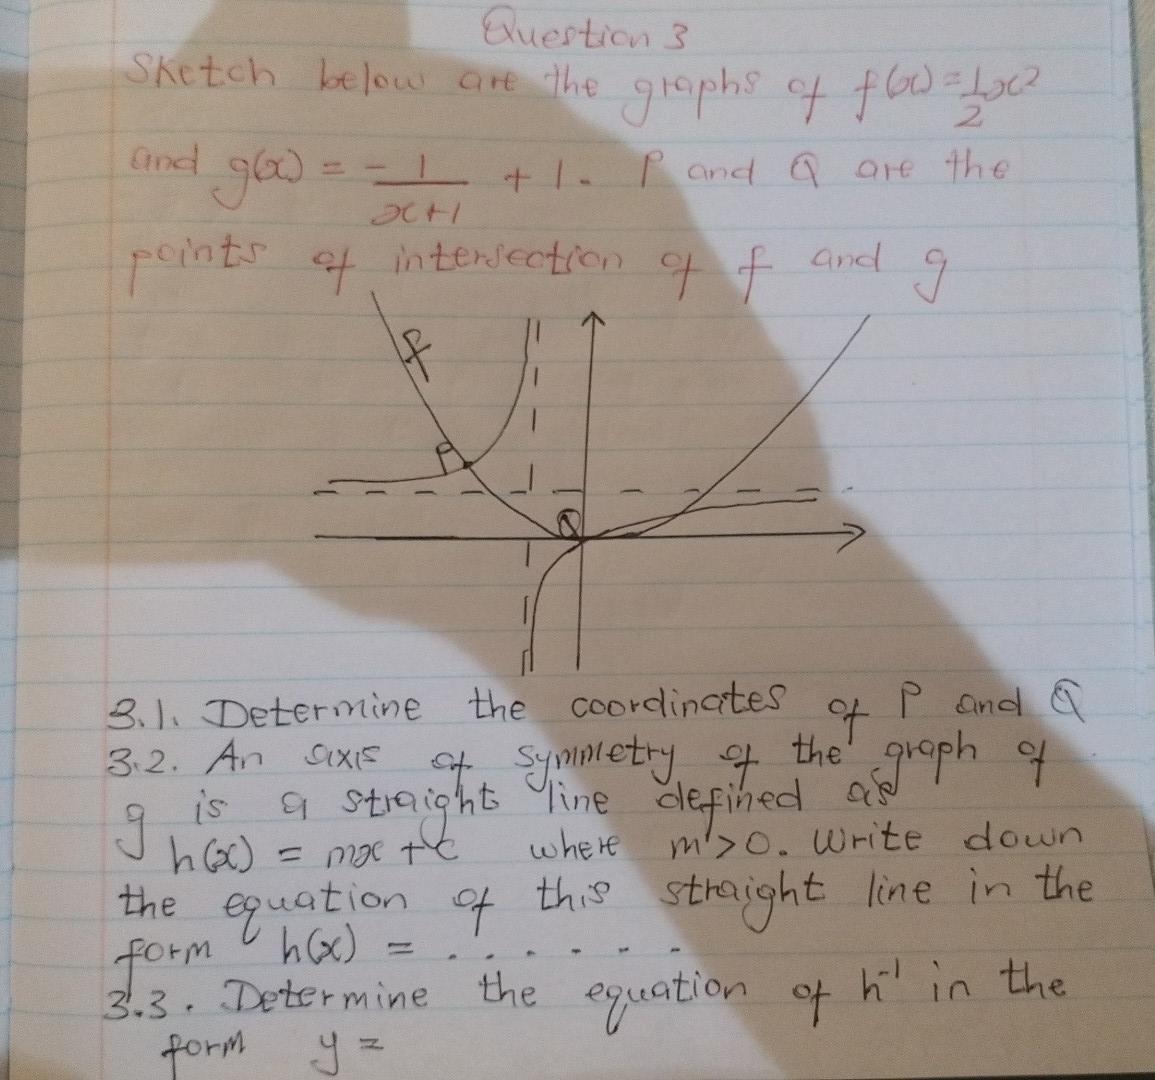 Question 3
Sketch below are the graphs of f(x)=1/2x²
and g(x) = -1/x+1 + 1. P and Q are the
points of intersection of f and g
f
P
Q
3.1. Determine the coordinates of P and Q
3.2. An axis of symmetry of the graph of
g is a straight line defined as
h(x) = mx + c where m>0. Write down
the equation of this straight line in the
form h(x) = . . . . . . .
3.3. Determine the equation of h⁻¹ in the
form y =